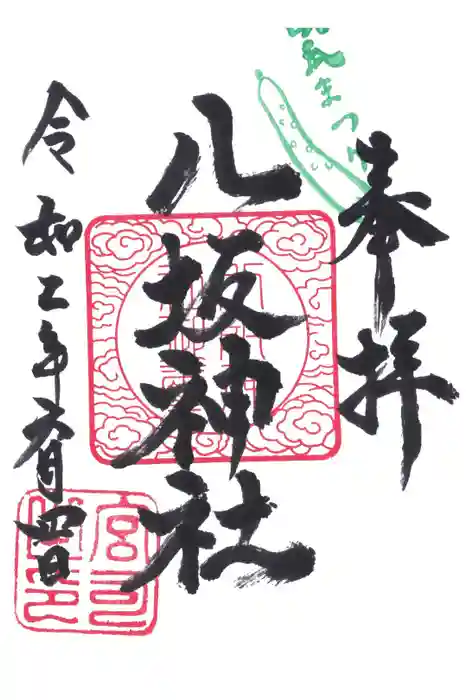 奉拝
瓜まつり
八坂神社
令和二年六月四日